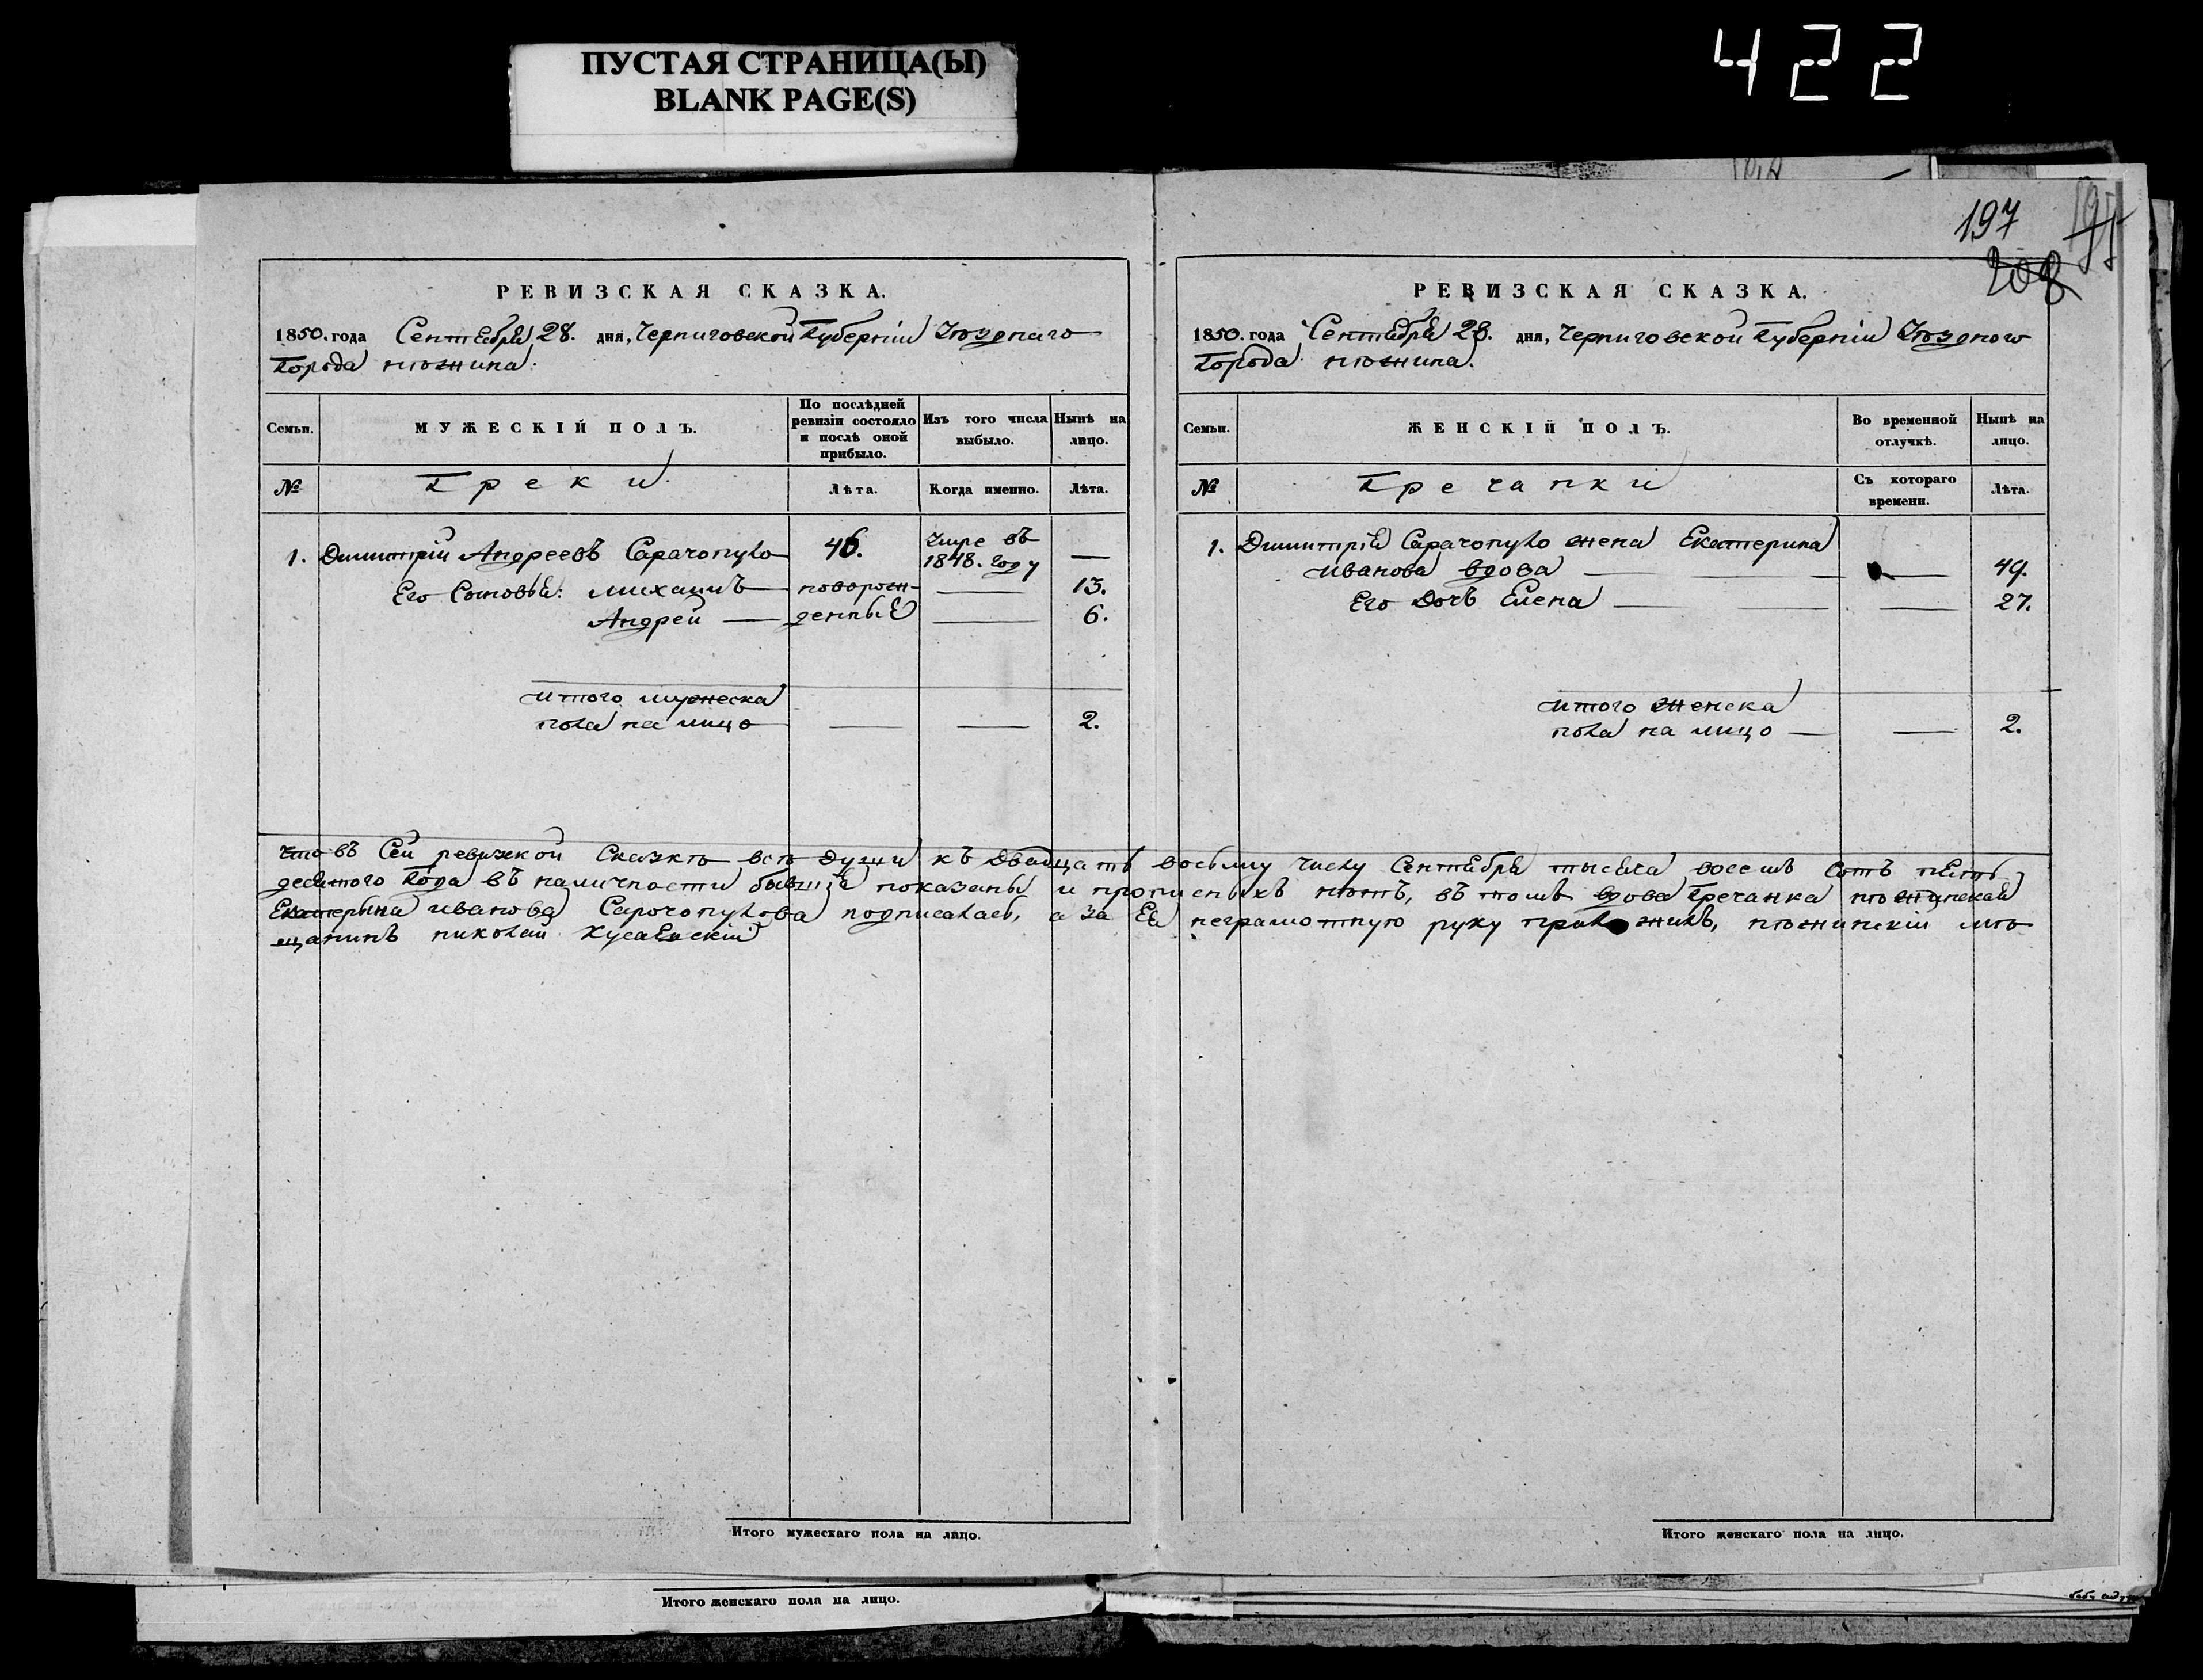 ПУСТАЯ СТРАНИЦА(Ы)
BLANK PAGE(S)
422
197
208
РЕВИЗСКАЯ СКАЗКА.
1850. года Сентября 28. дня, Черниговской Губерніи Уѣзднаго
Города нѣжина.
Семьи.
МУЖЕСКІЙ ПОЛЪ.
По послѣдней ревизіи состояло и послѣ оной прибыло.
Изъ того числа выбыло.
Нынѣ на лицо.
№
Греки
Лѣта.
Когда именно.
Лѣта.
1. Димитрій Андреевъ Сарачопуло 46. Умре въ 1848. году —
Его Сыновья: михаилъ новорож- — 13.
Андрей — денные — 6.
итого мужеска
пола на лицо — — 2.
РЕВИЗСКАЯ СКАЗКА.
1850. года Сентября 28. дня, Черниговской Губерніи Уѣздного
Города нѣжина.
Семьи.
ЖЕНСКІЙ ПОЛЪ.
Во временной отлучкѣ.
Нынѣ на лицо.
№
Гречанки
Съ котораго времени.
Лѣта.
1. Димитрія Сарачопуло жена Екатерина
иванова вдова — — 49.
Его Дочь Елена — — 27.
итого женска
пола на лицо — — 2.
Что въ Сей ревизкой Сказкѣ всѣ души къ Двадцать восьмму числу Сентября тысяча восемъ сотъ пять
десятого Года въ наличности бывшіе показаны и прописныхъ нѣтъ, въ томъ вдова Гречанка нѣжинская
Екатерына иванова Сарочопулова подписалась, а за Ея неграмотную руку приложилъ, нѣжинскій мѣ
щанинъ николай
Итого мужескаго пола на лицо.
Итого женскаго пола на лицо.
Итого женскаго пола на лицо.